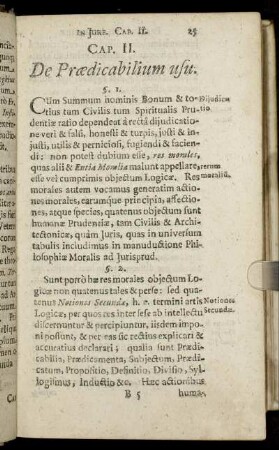 IN JURE. CAP. II. 25
CAP. II.
De Prædicabilium usu.
§. 1.
CUm Summum hominis Bonum & to- Dijudica-
tius tum Civilis tum Spiritualis Pru- tio
dentiæ ratio dependeat à rectâ dijudicatio-
ne veri & falsi, honesti & turpis, justi & in-
justi, utilis & perniciosi, fugiendi & facien-
di: non potest dubium esse, res morales,
quas alii & Entia Moralia malunt appellare, rerum
esse vel cumprimis objectum Logicæ. Res moralium.
morales autem vocamus generatim actio-
nes morales, earumque principia, affectio-
nes, atque species, quatenus objectum sunt
humanæ Prudentiæ, tam Civilis & Archi-
tectonicæ, quàm Juris, quas in universum
tabulis inclusimus in manuductione Phi-
losophiæ Moralis ad Jurisprud.
§. 2.
Sunt porrò hæ res morales objectum Lo-
gicæ non quatenus tales & per se: sed quâ-
tenus Notiones Secundæ, h. e. termini artis Notiones
Logicæ, per quos res inter sese ab intellectu Secundæ.
discernuntur & percipiuntur, iisdem impo-
ni possunt, & per eas sic rectius explicari &
accuratius declarari; qualia sunt Prædi-
cabilia, Prædicamenta, Subjectum, Prædi-
catum, Propositio, Definitio, Divisio, Syl-
logismus, Inductio &c. Hæc actionibus
B 5 huma-